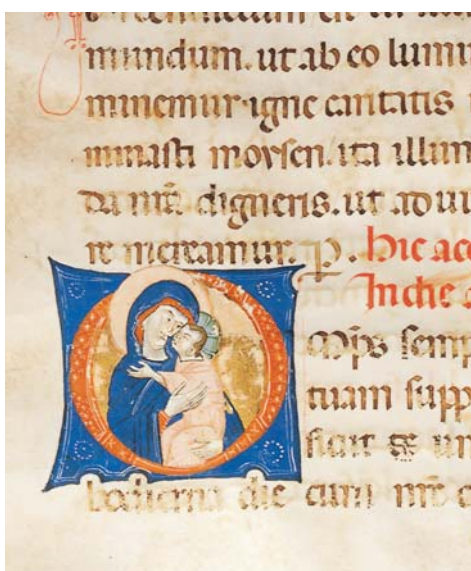 mundum. ut ab eo lumi
minemur igne caritatis
minasti moysen. ita illum
da digneris. ut ad ui
re mereamur. P. Hic acc
In die
Omp̄s semp
tuam supp
sicut un
hodierna die cum